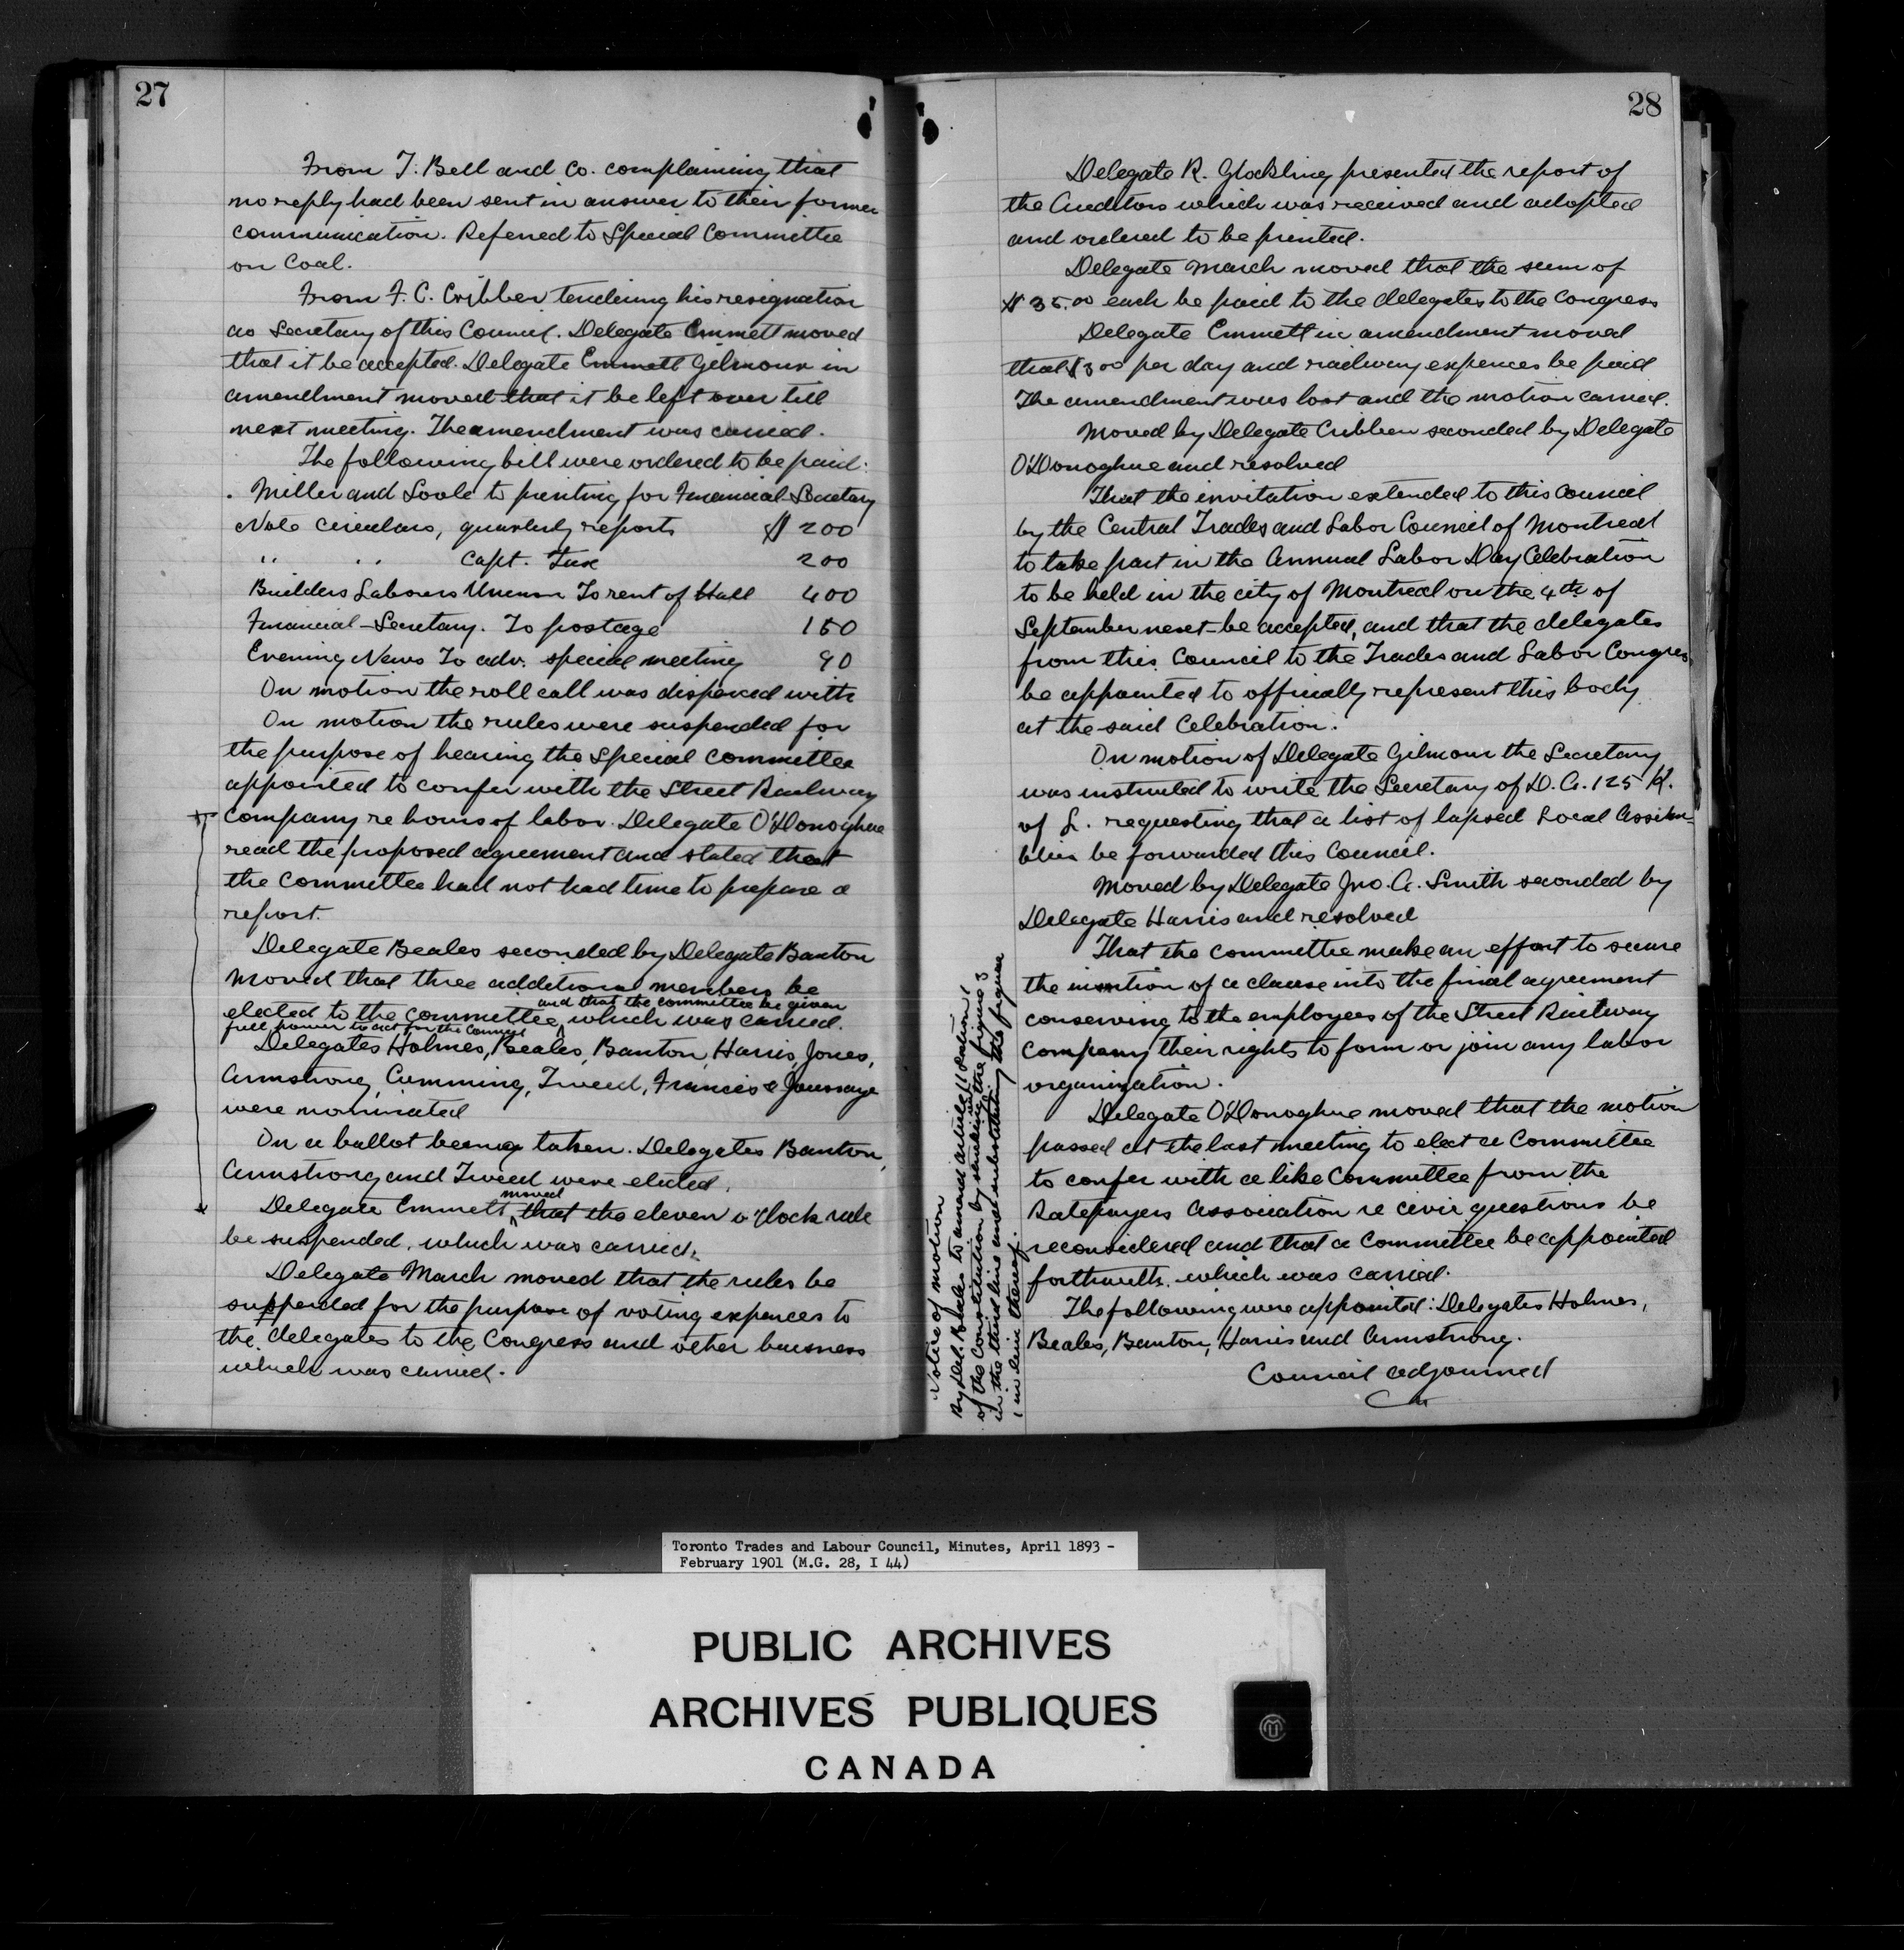 27
From T. Bell and Co. complaining that
no reply had been sent in answer to their former
communication. Referred to Special Committee
on Coal.
From F. C. Cribben tendering his resignation
as Secretary of this Council. Delegate Emmett moved
that it be accepted. Delegate Emmett Gilmour in
amendment moved that it be left over till
next meeting. The amendment was carried.
The following bill were ordered to be paid:
Miller and Soole to printing for Financial Secretary
Note Circulars, quarterly reports $ 200
" " Capt. Tax 200
Builders Labourers Union To rent of Hall 400
Financial-Secretary. To postage 150
Evening News To adv. special meeting 90
On motion the roll call was dispenced with
On motion the rules were suspended for
the purpose of hearing the Special Committee
appointed to confer with the Street Railway
Company re hours of labor. Delegate O'Donoghue
read the proposed agreement and stated that
the Committee had not had time to prepare a
report.
Delegate Beales seconded by Delegate Banton
moved that three additional members be
and that the committee be given
elected to the committee, which was carried.
full power to act for the Council
Delegates Holmes, Beales, Banton, Harris, Jones,
Armstrong, Cumming, Tweed, Francis &
were nominated
On a ballot being taken. Delegates Banton,
Armstrong and Tweed were elected.
moved
Delegate Emmett that the eleven o'clock rule
be suspended, which was carried.
Delegate March moved that the rules be
suspended for the purpose of voting expences to
the delegates to the Congress and other business
which was carried.
28
Delegate R. Glockling presented the report of
the Auditors which was received and adopted
and ordered to be printed.
Delegate March moved that the sum of
$35.00 each be paid to the delegates to the Congress
Delegate Emmett in amendment moved
that $3 00 per day and railway expences be paid
The amendment was lost and the motion carried.
Moved by Delegate Cribben seconded by Delegate
O'Donoghue and resolved
That the invitation extended to this Council
by the Central Trades and Labor Council of Montreal
to take part in the Annual Labor Day Celebration
to be held in the city of Montreal on the 4th of
September next be accepted, and that the delegates
from this Council to the Trades and Labor Congress
be appointed to offically represent this body
at the said Celebration.
On motion of Delegate Gilmour the Secretary
was instructed to write the Secretary of D. A. 125 K.
of L. requesting that a list of lapsed Local Assem-
blies be forwarded this Council.
Moved by Delegate Jno. A. Smith seconded by
Delegate Harris and resolved
That the committee make an effort to secure
the insertion of a clause into the final agreement
conserving to the employees of the Street Railway
Company their rights to form or join any labor
organization.
Delegate O'Donoghue moved that the motion
passed at the last meeting to elect a Committee
to confer with a like Committee from the
Ratepayers Association re civic questions be
reconsidered and that a Committee be appointed
forthwith. which was carried.
The following were appointed: Delegates Holmes,
Beales, Banton, Harris and Armstrong.
Council adjourned
Notice of motion
By Del. Beales to amend article 11 Section 1
of the Constitution by striking out the figure 3
in the third line and substituting the figure
1 in lieu thereof.
Toronto Trades and Labour Council, Minutes, April 1893 -
February 1901 (M.G. 28, I 44)
PUBLIC ARCHIVES
ARCHIVES PUBLIQUES
CANADA